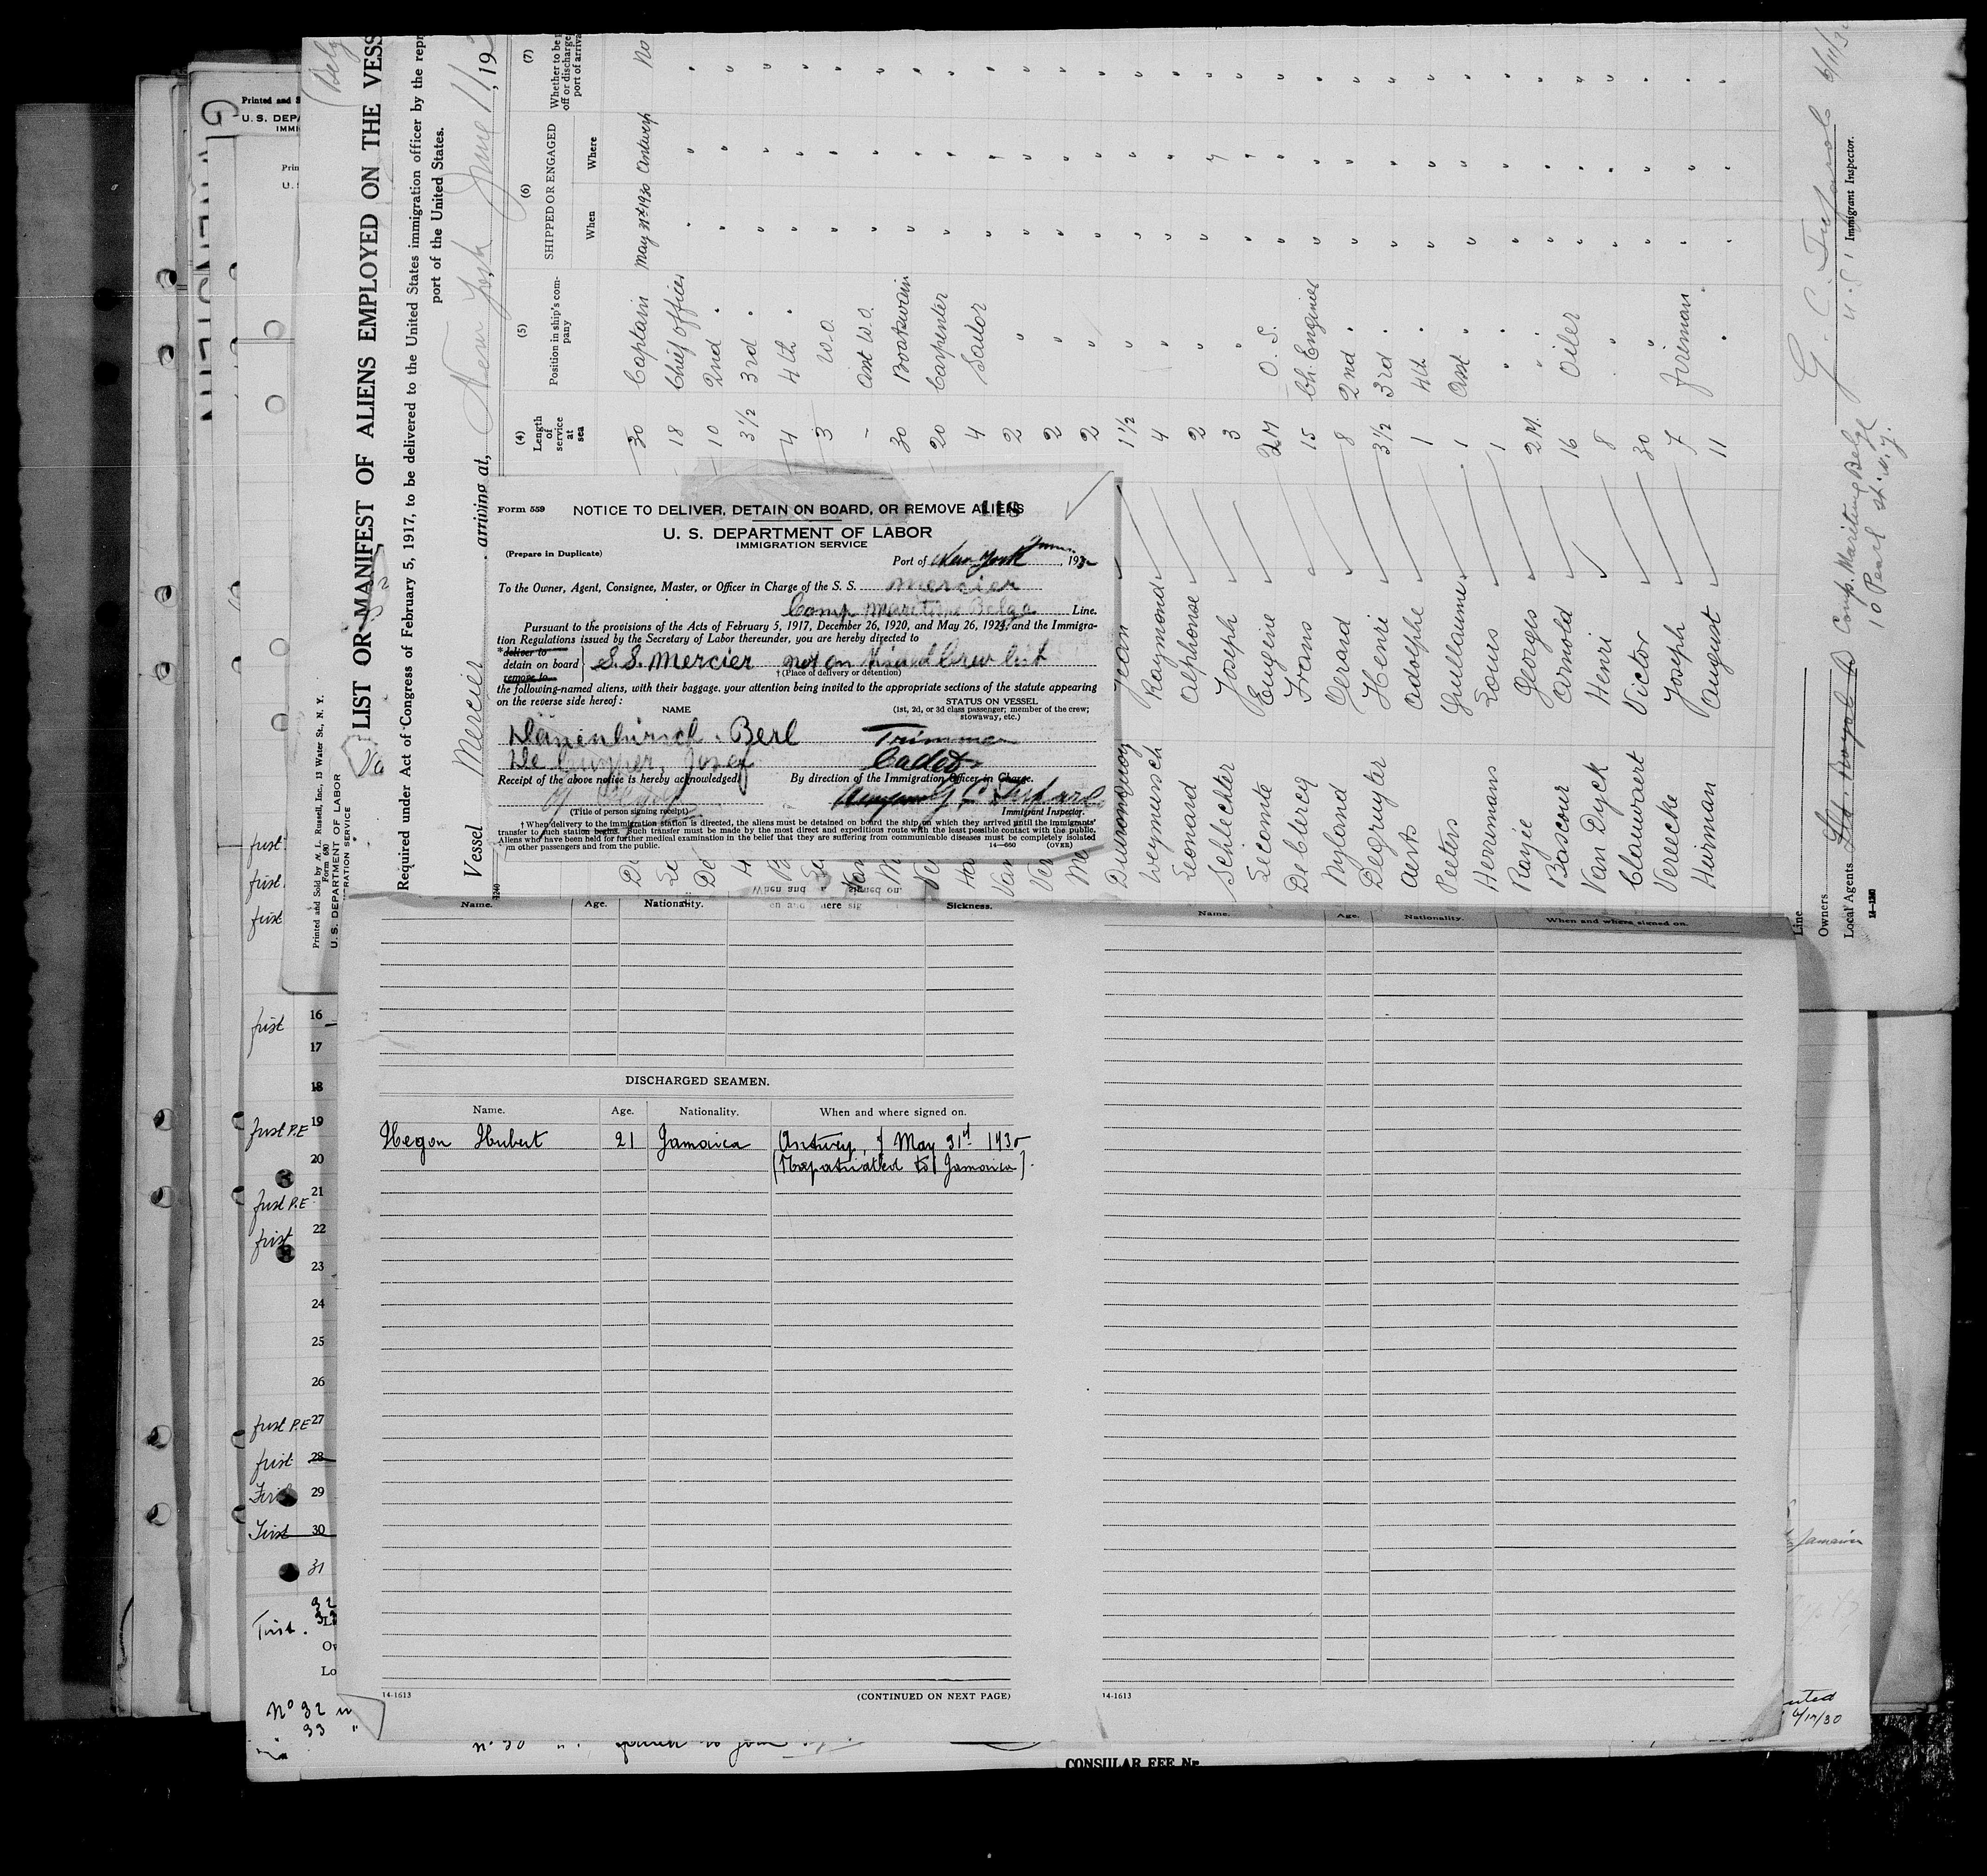 Printed and S
U. S. DEPA
IMMI
Prin
U. S
Printed and Sold by M. L. Russell, Inc., 13 Water St., N. Y.
Form 680
U. S. DEPARTMENT OF LABOR
IMMIGRATION SERVICE
LIST OR MANIFEST OF ALIENS EMPLOYED ON THE VESS
Required under Act of Congress of February 5, 1917, to be delivered to the United States immigration officer by the repr
port of the United States.
Vessel Mercier arriving at, New York June 11, 193
(4) Length of service at sea
(5) Position in ship's company
(6) SHIPPED OR ENGAGED
When
Where
(7) Whether to be
off or discharge
port of arriva
30 Captain May 31st 1930 Antwerp No
18 Chief Officer " " "
10 2nd " " " "
3½ 3rd " " " "
4 4th " " " "
3 W.O. " " "
- Asst W.O. " " "
30 Boatswain " " "
20 Carpenter " " "
4 Sailor " " "
2 " " " "
2 " " " "
2 " " " "
Dumonquoy Jean 1½ " " " "
Weymeersch Raymond 4 " " "
Leonard Alphonse 2 " " " "
Schlechter Joseph 3 " " " "
Leconte Eugene 2M O. S. " " "
Deblercq Frans 15 Ch. Engineer " " "
Nyland Gerard 8 2nd " " " "
Degruyter Henri 3½ 3rd " " " "
Aerts Adolphe 1 4th " " " "
Peeters Guillaume 1 Asst " " " "
Herremans Louis 1 " " " "
Rayje Georges 2M. " " " "
Bascour Arnold 16 Oiler " " "
Van Dyck Henri 8 " " " "
Clauwaert Victor 30 " " " "
Vereecke Joseph 7 Fireman " " "
Huirman August 11 " " " "
Line
Owners
Local Agents Comp. Maritime Belge
10 Pearl st. N.Y.
6/11/30
Immigrant Inspector.
14—1240
Form 559
NOTICE TO DELIVER, DETAIN ON BOARD, OR REMOVE ALIENS
118
U. S. DEPARTMENT OF LABOR
IMMIGRATION SERVICE
(Prepare in Duplicate)
Port of New York June, 193
To the Owner, Agent, Consignee, Master, or Officer in Charge of the S. S. Mercier
Comp Maritime Belge Line.
Pursuant to the provisions of the Acts of February 5, 1917, December 26, 1920, and May 26, 1924, and the Immigra-
tion Regulations issued by the Secretary of Labor thereunder, you are hereby directed to
*deliver to
detain on board
remove to
S.S. Mercier not on Visaed Crew list
†(Place of delivery or detention)
the following-named aliens, with their baggage, your attention being invited to the appropriate sections of the statute appearing
on the reverse side hereof:
NAME
STATUS ON VESSEL
(1st, 2d, or 3d class passenger; member of the crew;
stowaway, etc.)
Dannenhirsch. Berl Trimmer
De Cuyper, Josef Cadet
Receipt of the above notice is hereby acknowledged. By direction of the Immigration Officer in Charge.
(Title of person signing receipt)
Immigrant Inspector.
†When delivery to the immigration station is directed, the aliens must be detained on board the ship on which they arrived until the immigrants'
transfer to such station begins. Such transfer must be made by the most direct and expeditious route with the least possible contact with the public.
Aliens who have been held for further medical examination in the belief that they are suffering from communicable diseases must be completely isolated
om other passengers and from the public.
14—660 (OVER)
Name. Age. Nationality. Sickness.
DISCHARGED SEAMEN.
Name. Age. Nationality. When and where signed on.
Hegon Hubert 21 Jamaica Antwerp, May 31st 1930
(Repatriated to Jamaica).
14-1613
(CONTINUED ON NEXT PAGE)
Name. Age. Nationality. When and where signed on.
14-1613
first
first
first
first 16
17
18
first P.E 19
20
first P.E 21
first 22
23
24
25
26
first P.E 27
first 28
First 29
First 30
31
32
First. Li
Ow
Lo
No 32
33 "
Jamaica
6/17/30
CONSULAR FEE No